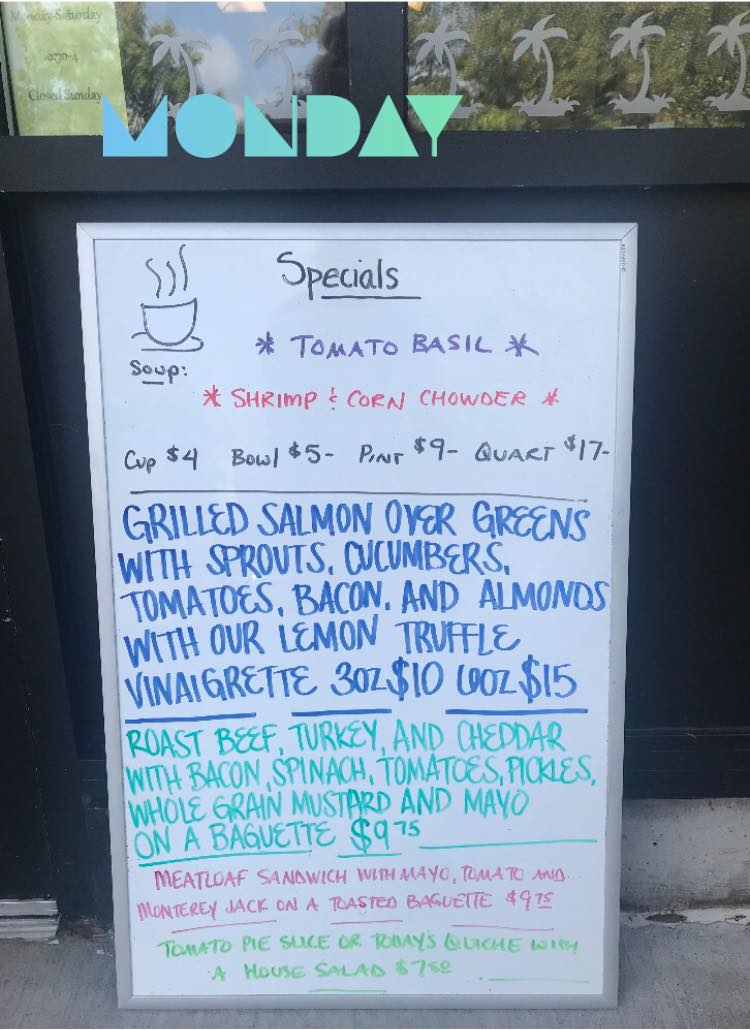 Monday-Saturday
Closed Sunday
MONDAY
Specials
* TOMATO BASIL *
Soup:
* SHRIMP & CORN CHOWDER *
Cup $4 Bowl $5- PINT $9- QUART $17-
GRILLED SALMON OVER GREENS
WITH SPROUTS, CUCUMBERS,
TOMATOES, BACON, AND ALMONDS
WITH OUR LEMON TRUFFLE
VINAIGRETTE 3OZ $10 6OZ $15
ROAST BEEF, TURKEY, AND CHEDDAR
WITH BACON, SPINACH, TOMATOES, PICKLES,
WHOLE GRAIN MUSTARD AND MAYO
ON A BAGUETTE $9 75
MEATLOAF SANDWICH WITH MAYO, TOMATO AND
MONTEREY JACK ON A TOASTED BAGUETTE $9 75
TOMATO PIE SLICE OR TODAY'S QUICHE WITH
A HOUSE SALAD $7 50